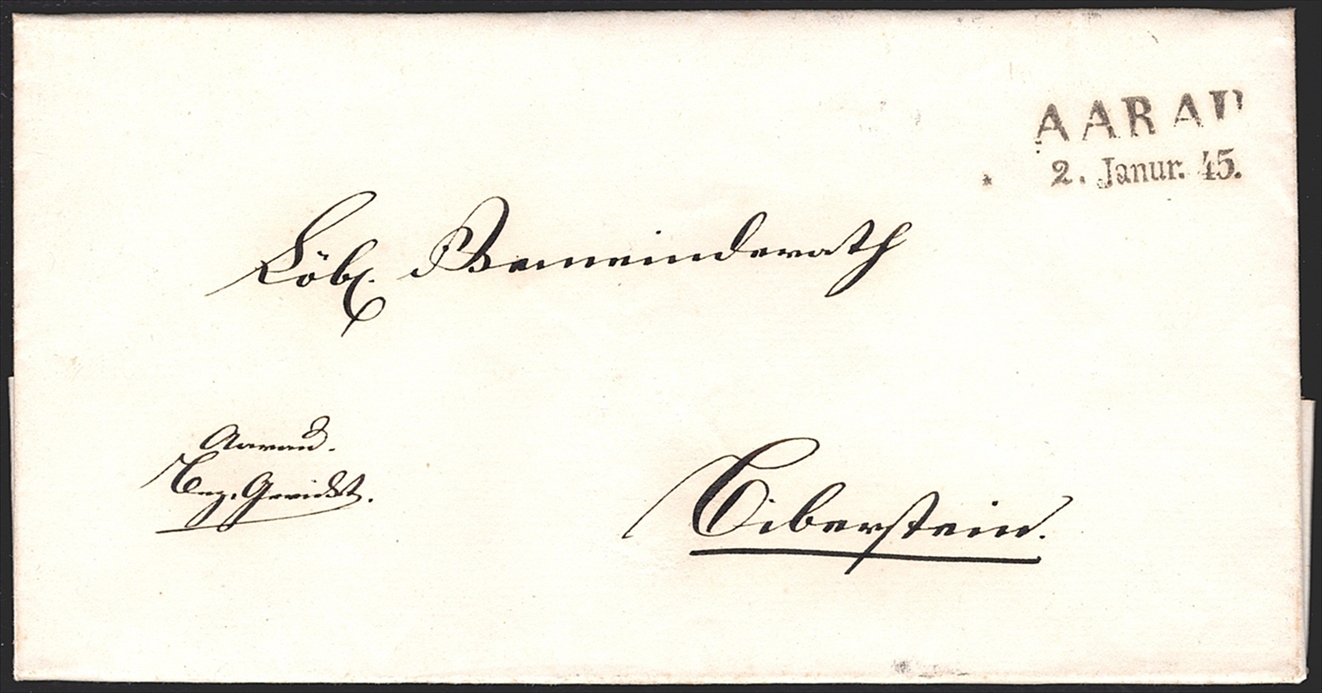 AARAU
2. Janur. 45.
Löbl. Gemeinderath
Aarau.
Bez. Gericht.
Biberstein.